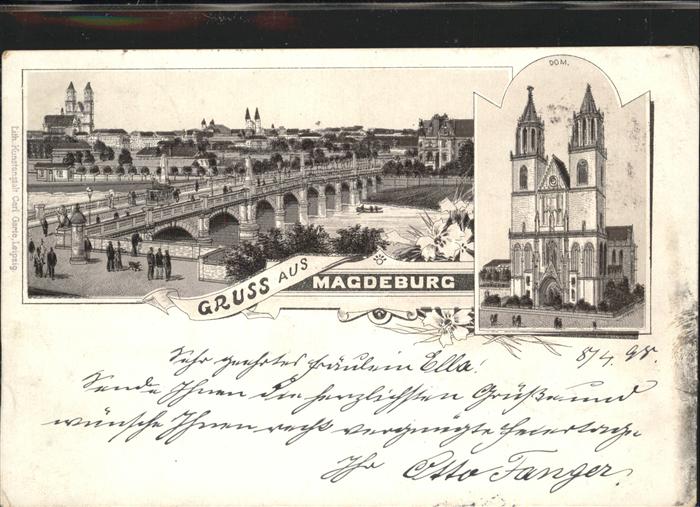 DOM.
Lith. Kunstanstalt Carl Garte, Leipzig.
GRUSS AUS MAGDEBURG
8/4. 98.
Sehr geehrtes Fräulein Ella!
Sende Ihnen die herzlichsten Grüße und
wünsche Ihnen recht vergnügte Feiertage.
Ihr Otto Fanger.